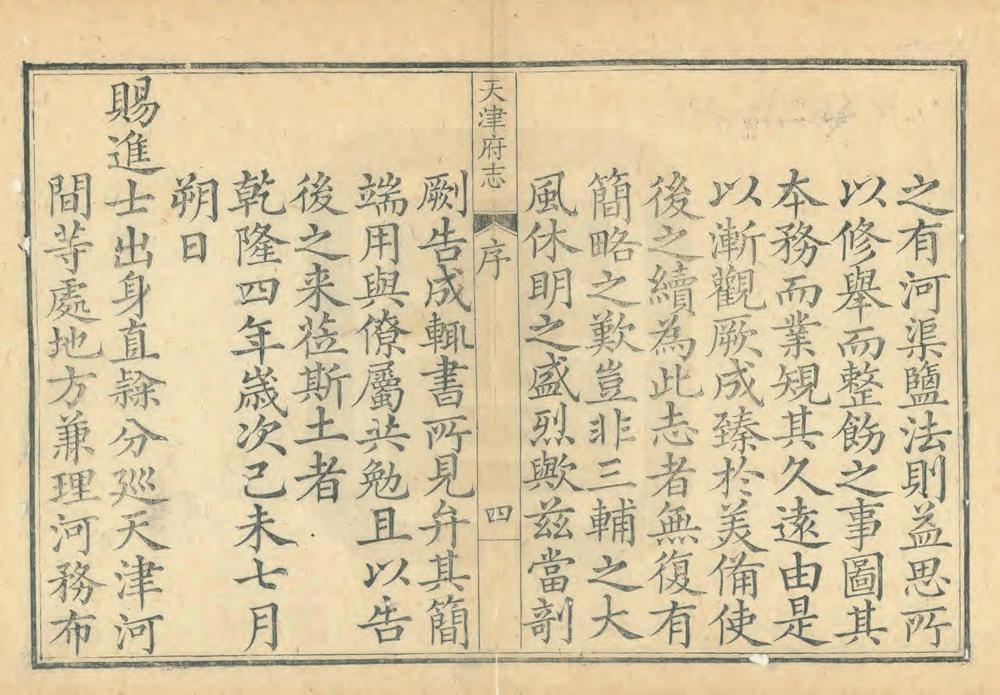 之有河渠鹽法則益思所
以修舉而整飭之事圖其
本務而業規其久遠由是
以漸觀厥成臻於美俻使
後之續為此志者無復有
簡略之歎豈非三輔之大
風休明之盛烈歟茲當剖
天津府志
序
四
劂告成輒書所見弁其簡
端用與僚屬共勉且以告
後之来莅斯土者
乾隆四年歲次己未七月
朔日
賜進士出身直隸分巡天津河
間等處地方兼理河務布